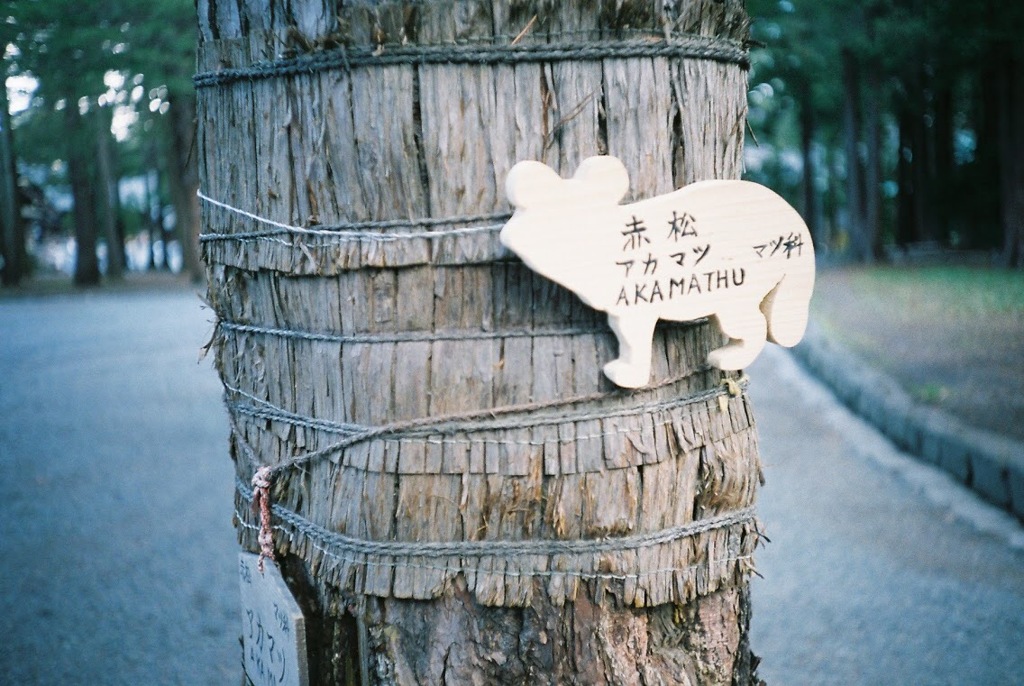 赤松
アカマツ マツ科
AKAMATHU
赤松
マツ科
アカマツ